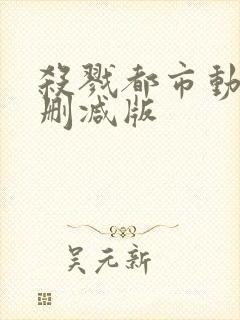 殺戮都市動
刪減版
吴元新